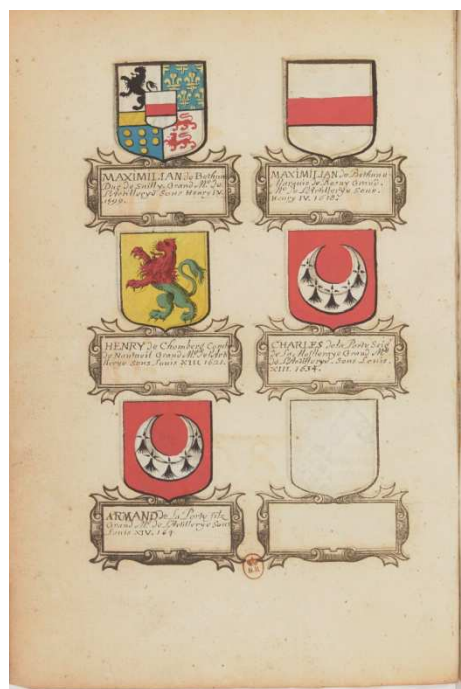 MAXIMILIAN de Bethune
Duc de Suilly Grand Mᵉ de
l'Artillerye Sous Henry IV.
1599.
MAXIMILIAN de Bethune
Marquis de Rosny Grand
Mᵉ de l'Artillerye Sous
Henry IV. 1610.
HENRY de Chomberg Comte
de Nantueil Grand Mᵉ de l'Artil
lerye Sous Louis XIII
CHARLES de la Porte Seigʳ
de la Melleraye Grand Mᵉ
de l'Artillerye Sous Louis
XIII. 1634.
ARMAND de la Porte fils
Grand Mᵉ de l'Artillerye Sous
Louis XIV. 164